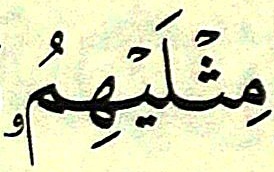 مِثْلَيْهِمُۥ